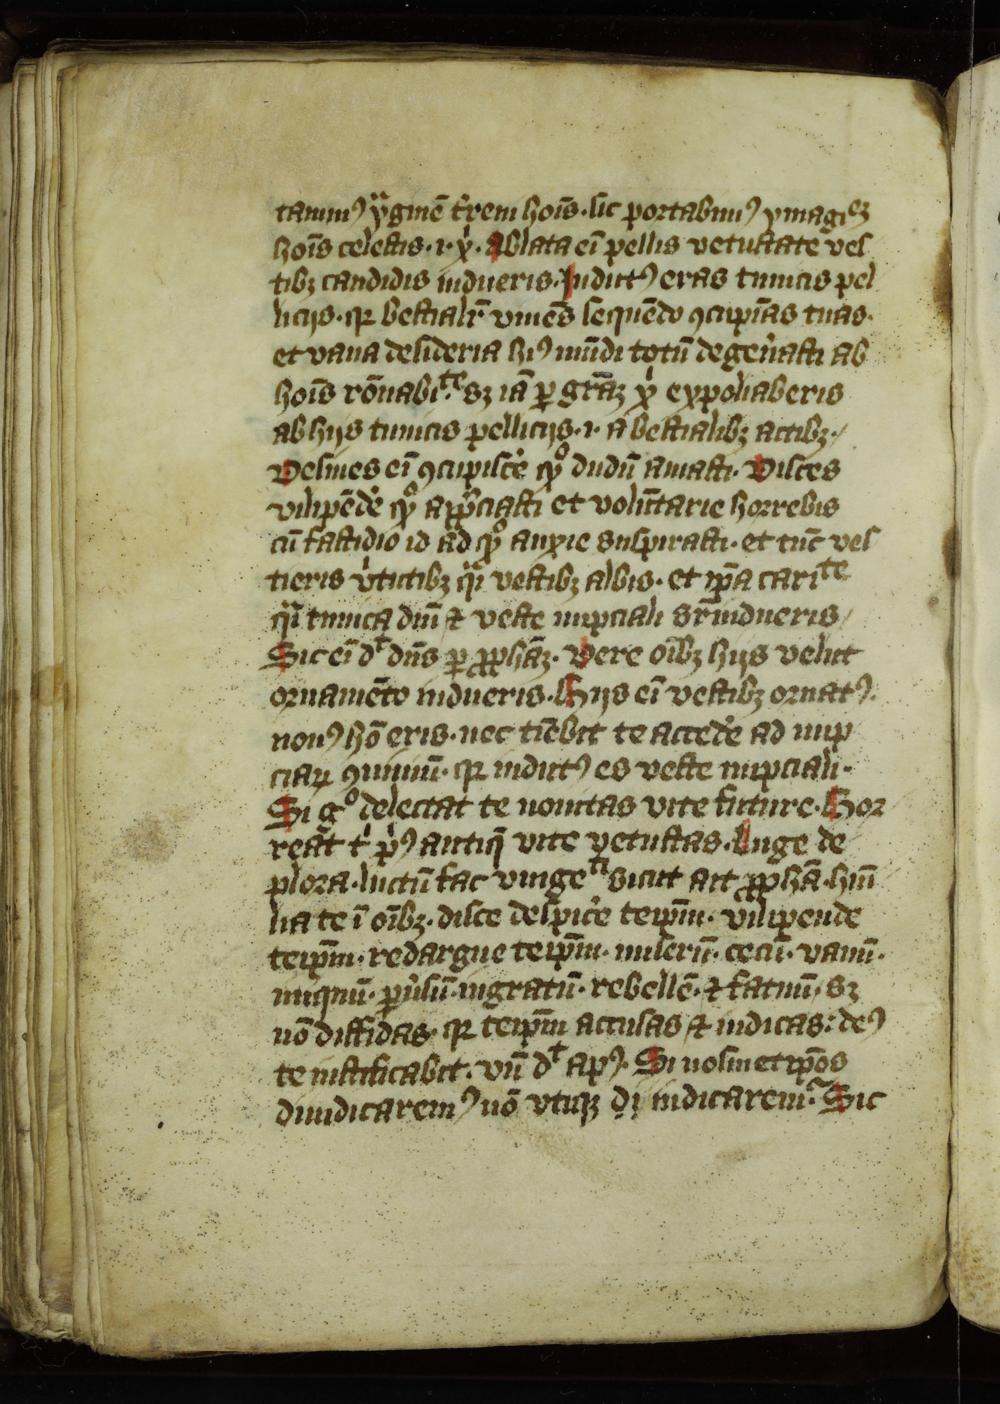 tamus ẏginē t̄reni hoīs · sic portabim9 ymagiēꝫ
hoīs celestis · i · xp̄i · Ablata eī pellis vetustate ves
tibꝫ candidis indueris · Indut9 eras tunicis pel
licijs · qꝛ bestialir̄ viuēs sequēdo ꝯcupīas tuas ·
et vana desideria hi9 mūdi totū degen̄asti ab
hoīs rōnabi.te sꝫ iā ꝑ grāꝫ xp̄i expoliaberis
ab hijs tunicis pellicijs · i · a bestialibꝫ actibꝫ ·/
Desines eī ꝯcupisc̄e qo dudū amasti · Disces
vilipēde qo app̄ciasti et volūtarie horrebis
cū fastidio id ad qo anxie suspirasti · et tūc ves
tieris v̄tutibꝫ qī vestibꝫ albis · et ip̄a carite
qī tunica diuī ⁊ veste nupciali sr̄ indueris /
Sic eī dt dn̄s ꝑ ꝓph̄aꝫ · Vere oībꝫ hijs velut
ornamēto indueris · Hijs eī vestibꝫ ornat9 ·
nou9 hō eris · nec tīebit te acced̄e ad nup
ciaꝝ ꝯuiuiū · qꝛ indut9 es veste nupciali ·
Si go delectat te nouitas vite future · Hor
reāt t̄ p̄9 antiq̄ vite vetustas · Luge de
plora · luctū fac vnigeti sicut ait ꝓph̄a · hūi
lia te ī oībꝫ · disce despic̄e teip̄m · vilipende
teip̄m · redargue teip̄m · miserū · cecū · vanū ·
iniquū · p̄uisū · ingratū · rebellē · ⁊ fatuū · sꝫ
nō diffidas · qꝛ teip̄m accusas ⁊ iudicas : de9
te iustificabit · vn̄ dt ap9 · Si nosmetip̄os
diiudicarem9 nō vtiqꝫ dij iudicarem̄ · Sic